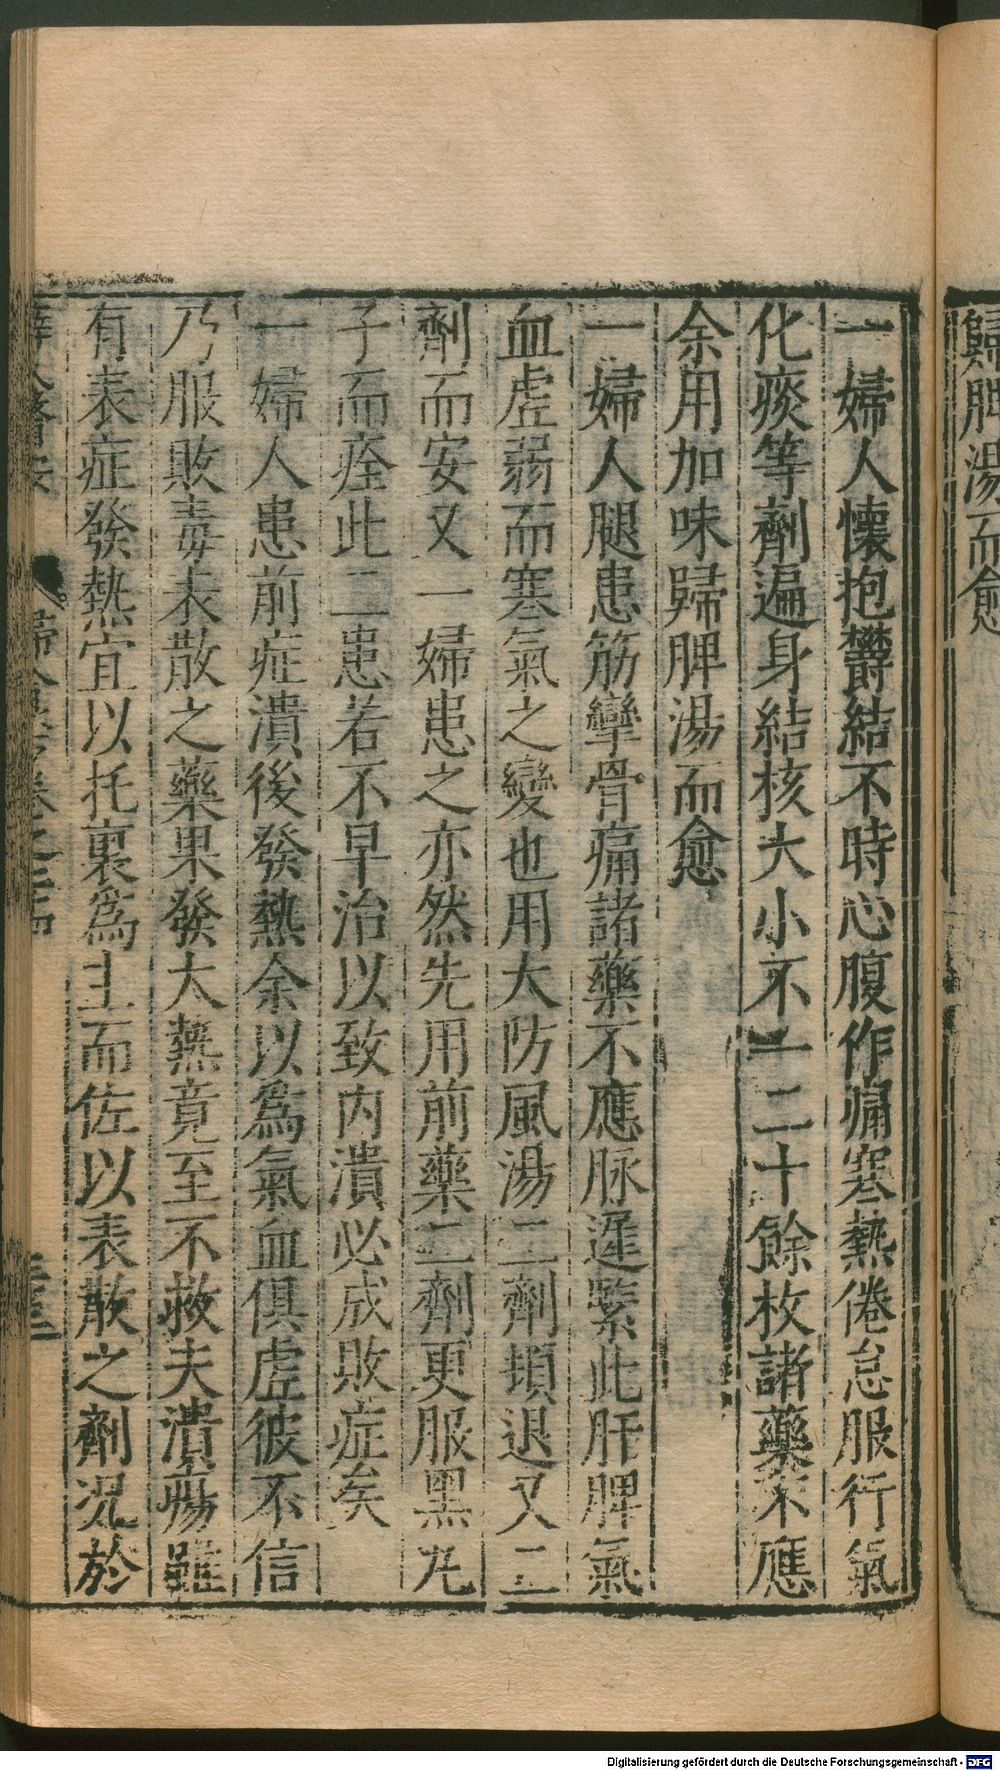 歸脾湯而愈
一婦人懷抱鬱結不時心腹作痛寒熱倦怠服行氣
化痰等劑遍身結核大小不一二十餘枚諸藥不應
余用加味歸脾湯而愈
一婦人腿患筋攣骨痛諸藥不應脉遲緊此肝脾氣
血虛弱而寒氣之變也用大防風湯二劑頓退又二
劑而安又一婦患之亦然先用前藥二劑更服黑丸
子而痊此二患若不早治以致內潰必成敗症矣
一婦人患前症潰後發熱余以爲氣血俱虛彼不信
乃服敗毒表散之藥果發大熱竟至不救夫潰瘍雖
有表症發熱宜以托裏爲主而佐以表散之劑況於
婦人良方卷之二十四
Digitalisierung gefördert durch die Deutsche Forschungsgemeinschaft - DFG